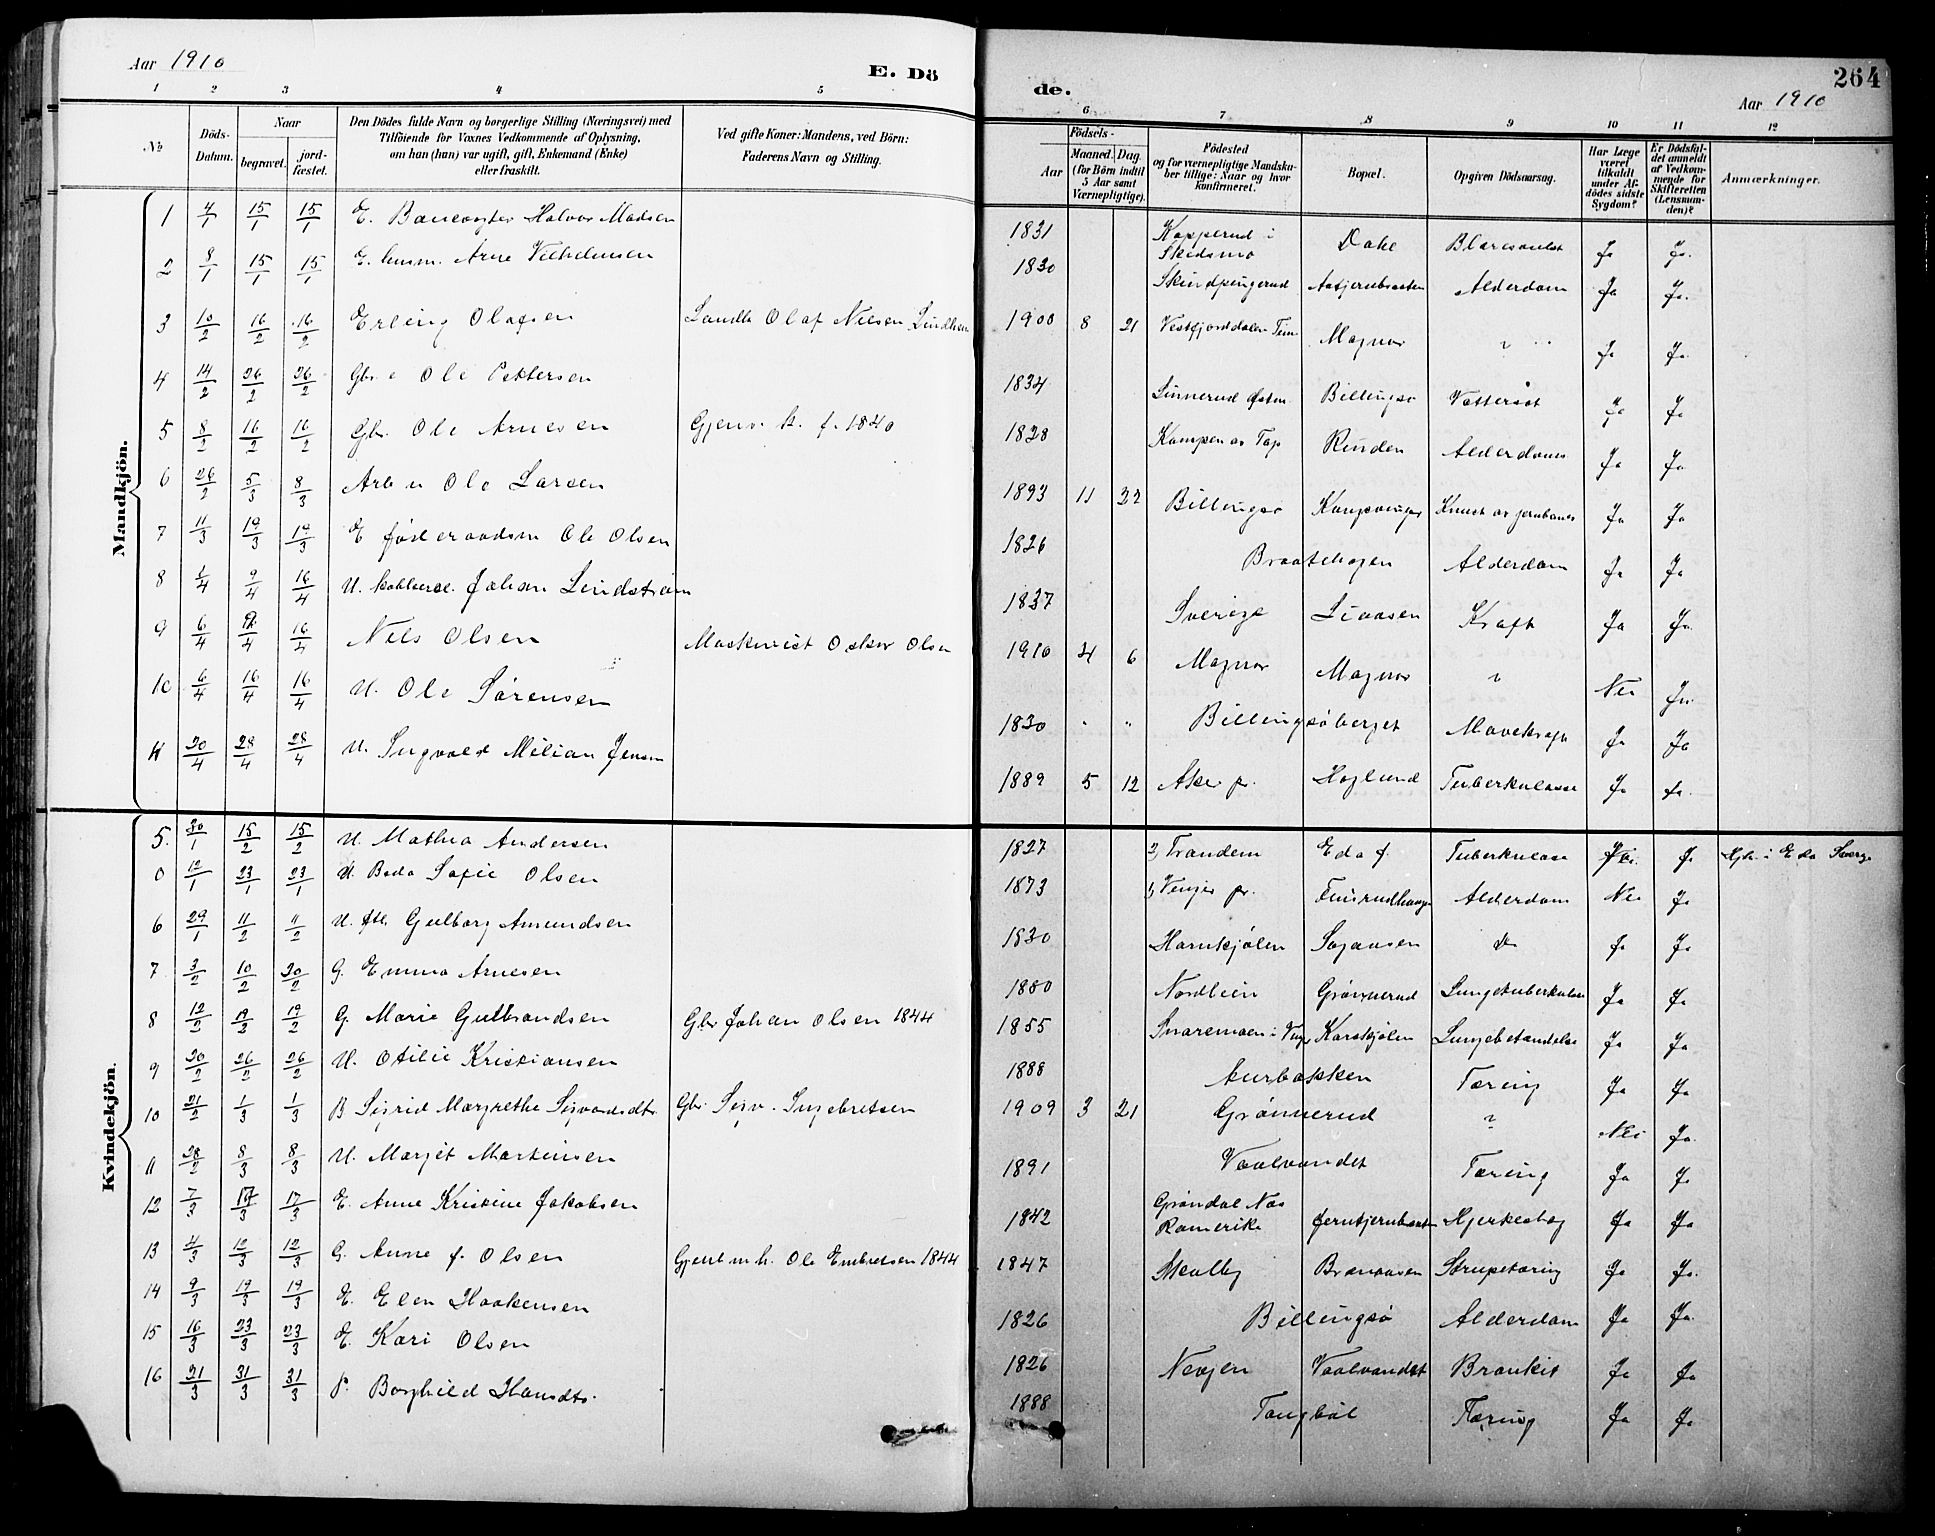 Aar 1910
E. Dö
de.
264
Aar 1910
1 2 3 4 5 6 7 8 9 10 11 12
No
Döds-Datum.
Naar
begravet.
jord-fæstet.
Den Dödes fulde Navn og borgerlige Stilling (Næringsvei) med
Tilföiende for Voxnes Vedkommende af Oplysning,
om han (hun) var ugift, gift, Enkemand (Enke)
eller fraskilt.
Ved gifte Koner: Mandens, ved Börn:
Faderens Navn og Stilling.
Födsels-
Aar
Maaned. Dag.
(for Börn indtil
5 Aar samt
Værnepligtige).
Födested
og for værnepligtige Mandsku-
ber tillige: Naar og hvor
konfirmeret.
Bopæl.
Opgiven Dödsaarsag.
Har Læge
været
tilkaldt
under Af-
dödes sidste
Sygdom?
Er Dödsfal-
det anmeldt
af Vedkom-
mende for
Skifteretten
(Lensman-
den)?
Anmærkninger.
Mandkjön.
1 4/1 15/1 15/1 E. Banevogter Halvor Madsen 1831 Kopperud i Skedsmo Ja Ja.
2 8/1 15/1 15/1 E. husm. Arne 1830 Alderdom Ja Ja.
3 10/2 16/2 16/2 Erling Olafsen Olaf Nilsen 1900 8 21 Magnor " Ja Ja.
4 14/2 26/2 26/2 Gbr. e Ole Pettersen 1834 Billingsø Vattersot Ja Ja
5 8/2 16/2 16/2 Gbr. Ole Arnesen Gjenv. k. f. 1840 1828 Alderdom Ja Ja
6 26/2 5/3 8/3 Arb u Ole Larsen 1893 11 22 Billingsø Kongsvinger Knust av jernbanen Ja Ja
7 11/3 19/3 19/3 E føderaadsm Ole Olsen 1826 Braatehagen Alderdom Ja Ja
8 1/4 9/4 16/4 U. Johan Lindstrøm 1837 Sverige Liaasen Kræft Ja Ja.
9 6/4 16/4 Nils Olsen Maskinist Oskar Olsen 1910 4 6 Magnor Magnor " Nei Ja.
10 6/4 16/4 16/4 U. Ole Sørensen 1830 " " Billingsøberget Mavekræft Ja Ja
11 20/4 28/4 28/4 U. Ingvald Milian Jensen 1889 5 12 Aker pr. Haglund Tuberkulose Ja Ja.
Kvindekjön.
5. 30/1 15/2 15/2 U. Mathea Andersen 1827 2) Trandem Eda f. Tuberkulose Ja i Eda Sverge
0 12/1 23/1 23/1 U. Beda Sofie Olsen 1873 1) Vinger pr. Alderdom Nei Ja
6 29/1 11/2 11/2 U. Gulborg Amundsen 1830 Harnkjølen do Ja Ja
7 3/2 10/2 20/2 G. Emma Arnesen 1880 Grønnerud Lungetuberkulose Ja Ja
8 12/2 19/2 19/2 G. Marie Gulbrandsen Gbr Johan Olsen 1844 1855 Snaremoen i Ving Karskjølen Lungebetændelse Ja Ja
9 20/2 26/2 26/2 U. Otilie Kristiansen 1888 Aurbakken Tæring Ja Ja
10 21/2 1/3 1/3 B Sigrid Margrethe Sigvardsdtr. Gbr. Sigv. Ingebretsen 1909 3 21 Grønnerud ? Nei Ja.
11 28/2 8/3 8/3 U. Margit Martinsen 1891 Vaalvandet Tæring Ja Ja
12 7/3 17/3 17/3 E. Anne Kristine Jakobsen 1842 Grøndal Nes Romerike Hjerteslag Ja Ja
13 4/3 12/3 12/3 G. Anne f. Olsen Ole Embretsen 1844 1847 Skulby Brænaasen Strupetæring Ja Ja.
14 9/3 19/3 19/3 E. Elen Haakensen 1826 Billingsø Alderdom Ja Ja.
15 16/3 23/3 23/3 E. Kari Olsen 1826 Nevjen Vaalvandet Bronkit Ja Ja
16 21/3 31/3 31/3 P. Borghild Hansdtr. 1888 Tangbøl Tæring Ja Ja